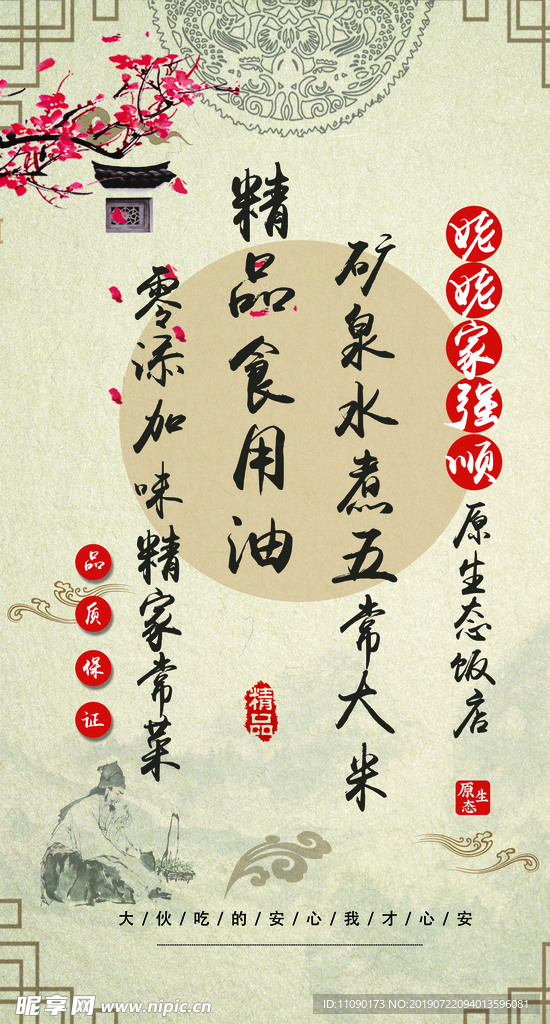 妮妮家强顺
原生态饭店
原生态
矿泉水煮五常大米
精品食用油
精品
零添加味精家常菜
品质保证
大/伙/吃/的/安/心/我/才/心/安
昵享网 www.nipic.cn
ID:11090173 NO:20190722094013596081